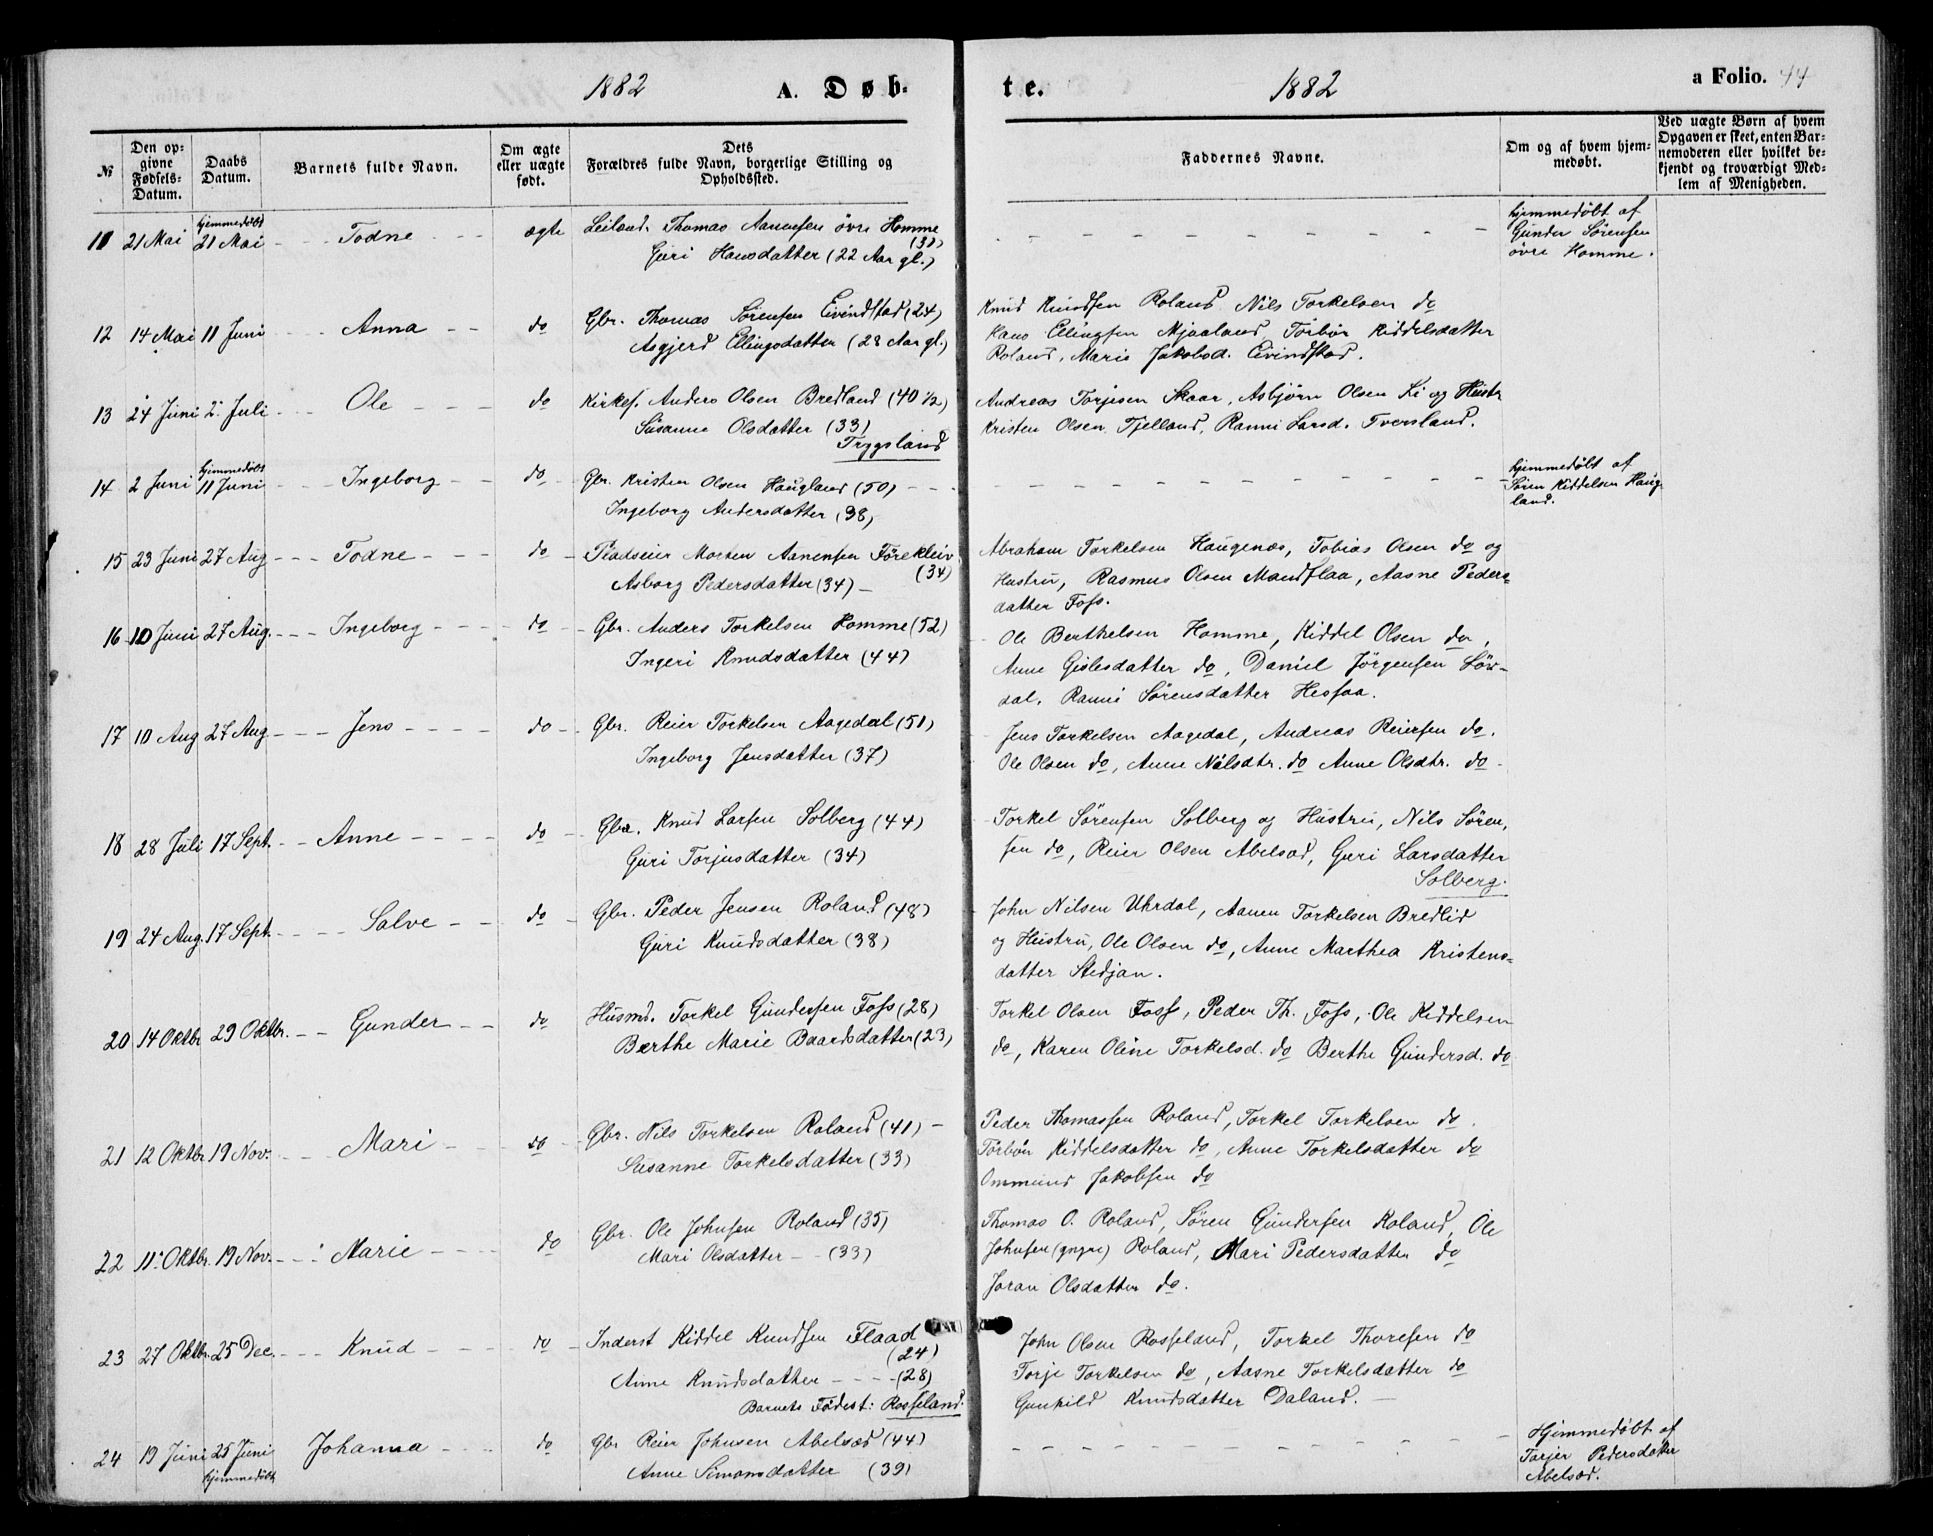 1882 A. Døb-
te. 1882 a Folio. 44
№
Den op-
givne
Fødsels-
Datum.
Daabs
Datum.
Barnets fulde Navn.
Om ægte
eller uægte
født.
Dets
Forældres fulde Navn, borgerlige Stilling og
Opholdssted.
Faddernes Navne.
Om og af hvem hjem-
medøbt.
Ved uægte Børn af hvem
Opgaven er skeet, enten Bar-
nemoderen eller hvilket be-
kjendt og troværdigt Med-
lem af Menigheden.
hjemmedøbt
11 21 Mai 21 Mai - - Todne - - ægte Leilænd. Thomas Aanensen övre Homme
(31)
Guri Hansdatter (22 Aar gl.)
hjemmedöbt af
Gunder Sörensen
övre Homme.
12 14 Mai 11 Juni - - Anna - - do Gbr. Thomas Sörensen Eivindstad (24)
Asgjerd Ellingsdatter (28 Aar gl.)
Knud Knudsen Roland Nils Torkelsen do
Hans Ellingsen Mjaaland Torbör Kiddelsdatter
Roland, Marie Jakobsd. Eivindstad.
13 24 Juni 2. Juli - - Ole - - - do Kirkes. Anders Olsen Bredland (40 1/2)
Susanne Olsdatter (33)
Trygsland
Andreas Torjesen Skaar, Asbjörn Olsen Li og Hustr
Kristen Olsen Tjelland, Ranni Larsd. Tversland.
hjemmedöbt
14 2 Juni 11 Juni - - Ingeborg - - do - Gbr. Kristen Olsen Haugland (50) - - -
Ingeborg Andersdatter (38)
hjemmedöbt af
Sören Kiddelsen Haug-
land.
15 23 Juni 27 Aug - - - Todne - - - do - Pladseier Morten Aanensen Förekleiv
(34)
Asborg Pedersdatter (34) -
Abraham Torkelsen Haugenæs, Tobias Olsen do og
Hustru, Rasmus Olsen Mandflaa, Aasne Peders=
datter Foss.
16 10 Juni 27 Aug. - - - Ingeborg - - - do - Gbr. Anders Torkelsen Homme (52)
Ingeri Knudsdatter (44)
Ole Berthelsen Homme, Kiddel Olsen do,
Anne Gislesdatter do, Daniel Jörgensen Löv-
dal, Ranni Sörensdatter Hesfaa.
17 10 Aug 27 Aug - - - Jens - - - - do - Gbr. Reier Torkelsen Aagedal (51)
Ingeborg Jensdatter (37)
Jens Torkelsen Aagedal, Andreas Reiersen do.
Ole Olsen do, Anne Nilsdtr. do Anne Olsdtr. do -
18 28 Juli 17 Sept. - - Anne - - - - do - Gbr. Knud Larsen Solberg (44)
Guri Torjusdatter (34)
Torkel Sörensen Solberg og Hustru, Nils Sören,
sen do, Reier Olsen Abelsæd, Guri Larsdatter
Solberg.
19 24 Aug. 17 Sept. - - - Salve - - do - Gbr. Peder Jensen Roland (48)
Guri Knudsdatter (38)
John Nilsen Uhrdal, Aanen Torkelsen Bredlid
og Hustru, Ole Olsen do, Anne Marthea Kristens=
datter Stedjan.
20 14 Oktbr 29 Oktbr. - - Gunder - - do Husmd. Torkel Gundersen Foss (28)
Berthe Marie Baardsdatter (23)
Torkel Olsen Foss, Peder Th. Foss, Ole Kiddelsen
do, Karen Oline Torkelsd. do Berthe Gundersd. do
21 12 Oktbr 19 Nov. - - Mari - - do - Gbr. Nils Torkelsen Roland (41) -
Susanne Torkelsdatter (33)
Peder Thomassen Roland, Torkel Torkelsen do.
Torbör Kiddelsdatter do, Anne Torkelsdatter do
Ommund Jakobsen do
22 11. Oktbr. 19 Nov. - - - Marie - - - - do Gbr. Ole Johnsen Roland (35)
Mari Olsdatter - - (33)
Thomas O. Roland, Sören Gundersen Roland, Ole
Johnsen (yngre) Roland, Mari Pedersdatter do
Joran Olsdatter do.
23 27 Oktbr. 25 Dec. - - - Knud - - - do - Inderst Kiddel Knudsen Flaad
(24)
Anne Knudsdatter - - - - (28)
Barnets Födest: Rosseland.
John Olsen Rosseland, Torkel Thoresen do
Torje Torkelsen do, Aasne Torkelsdatter do
Gunhild Knudsdatter Daland. -
24 19 Juni 25 Juni Johanna - - - do Gbr Reier Johnsen Abelsæd (44)
hjemmedöbt
Anne Simonsdatter (39)
Hjemmedöbt af
Torjer Pedersdatter
Abelsæd.